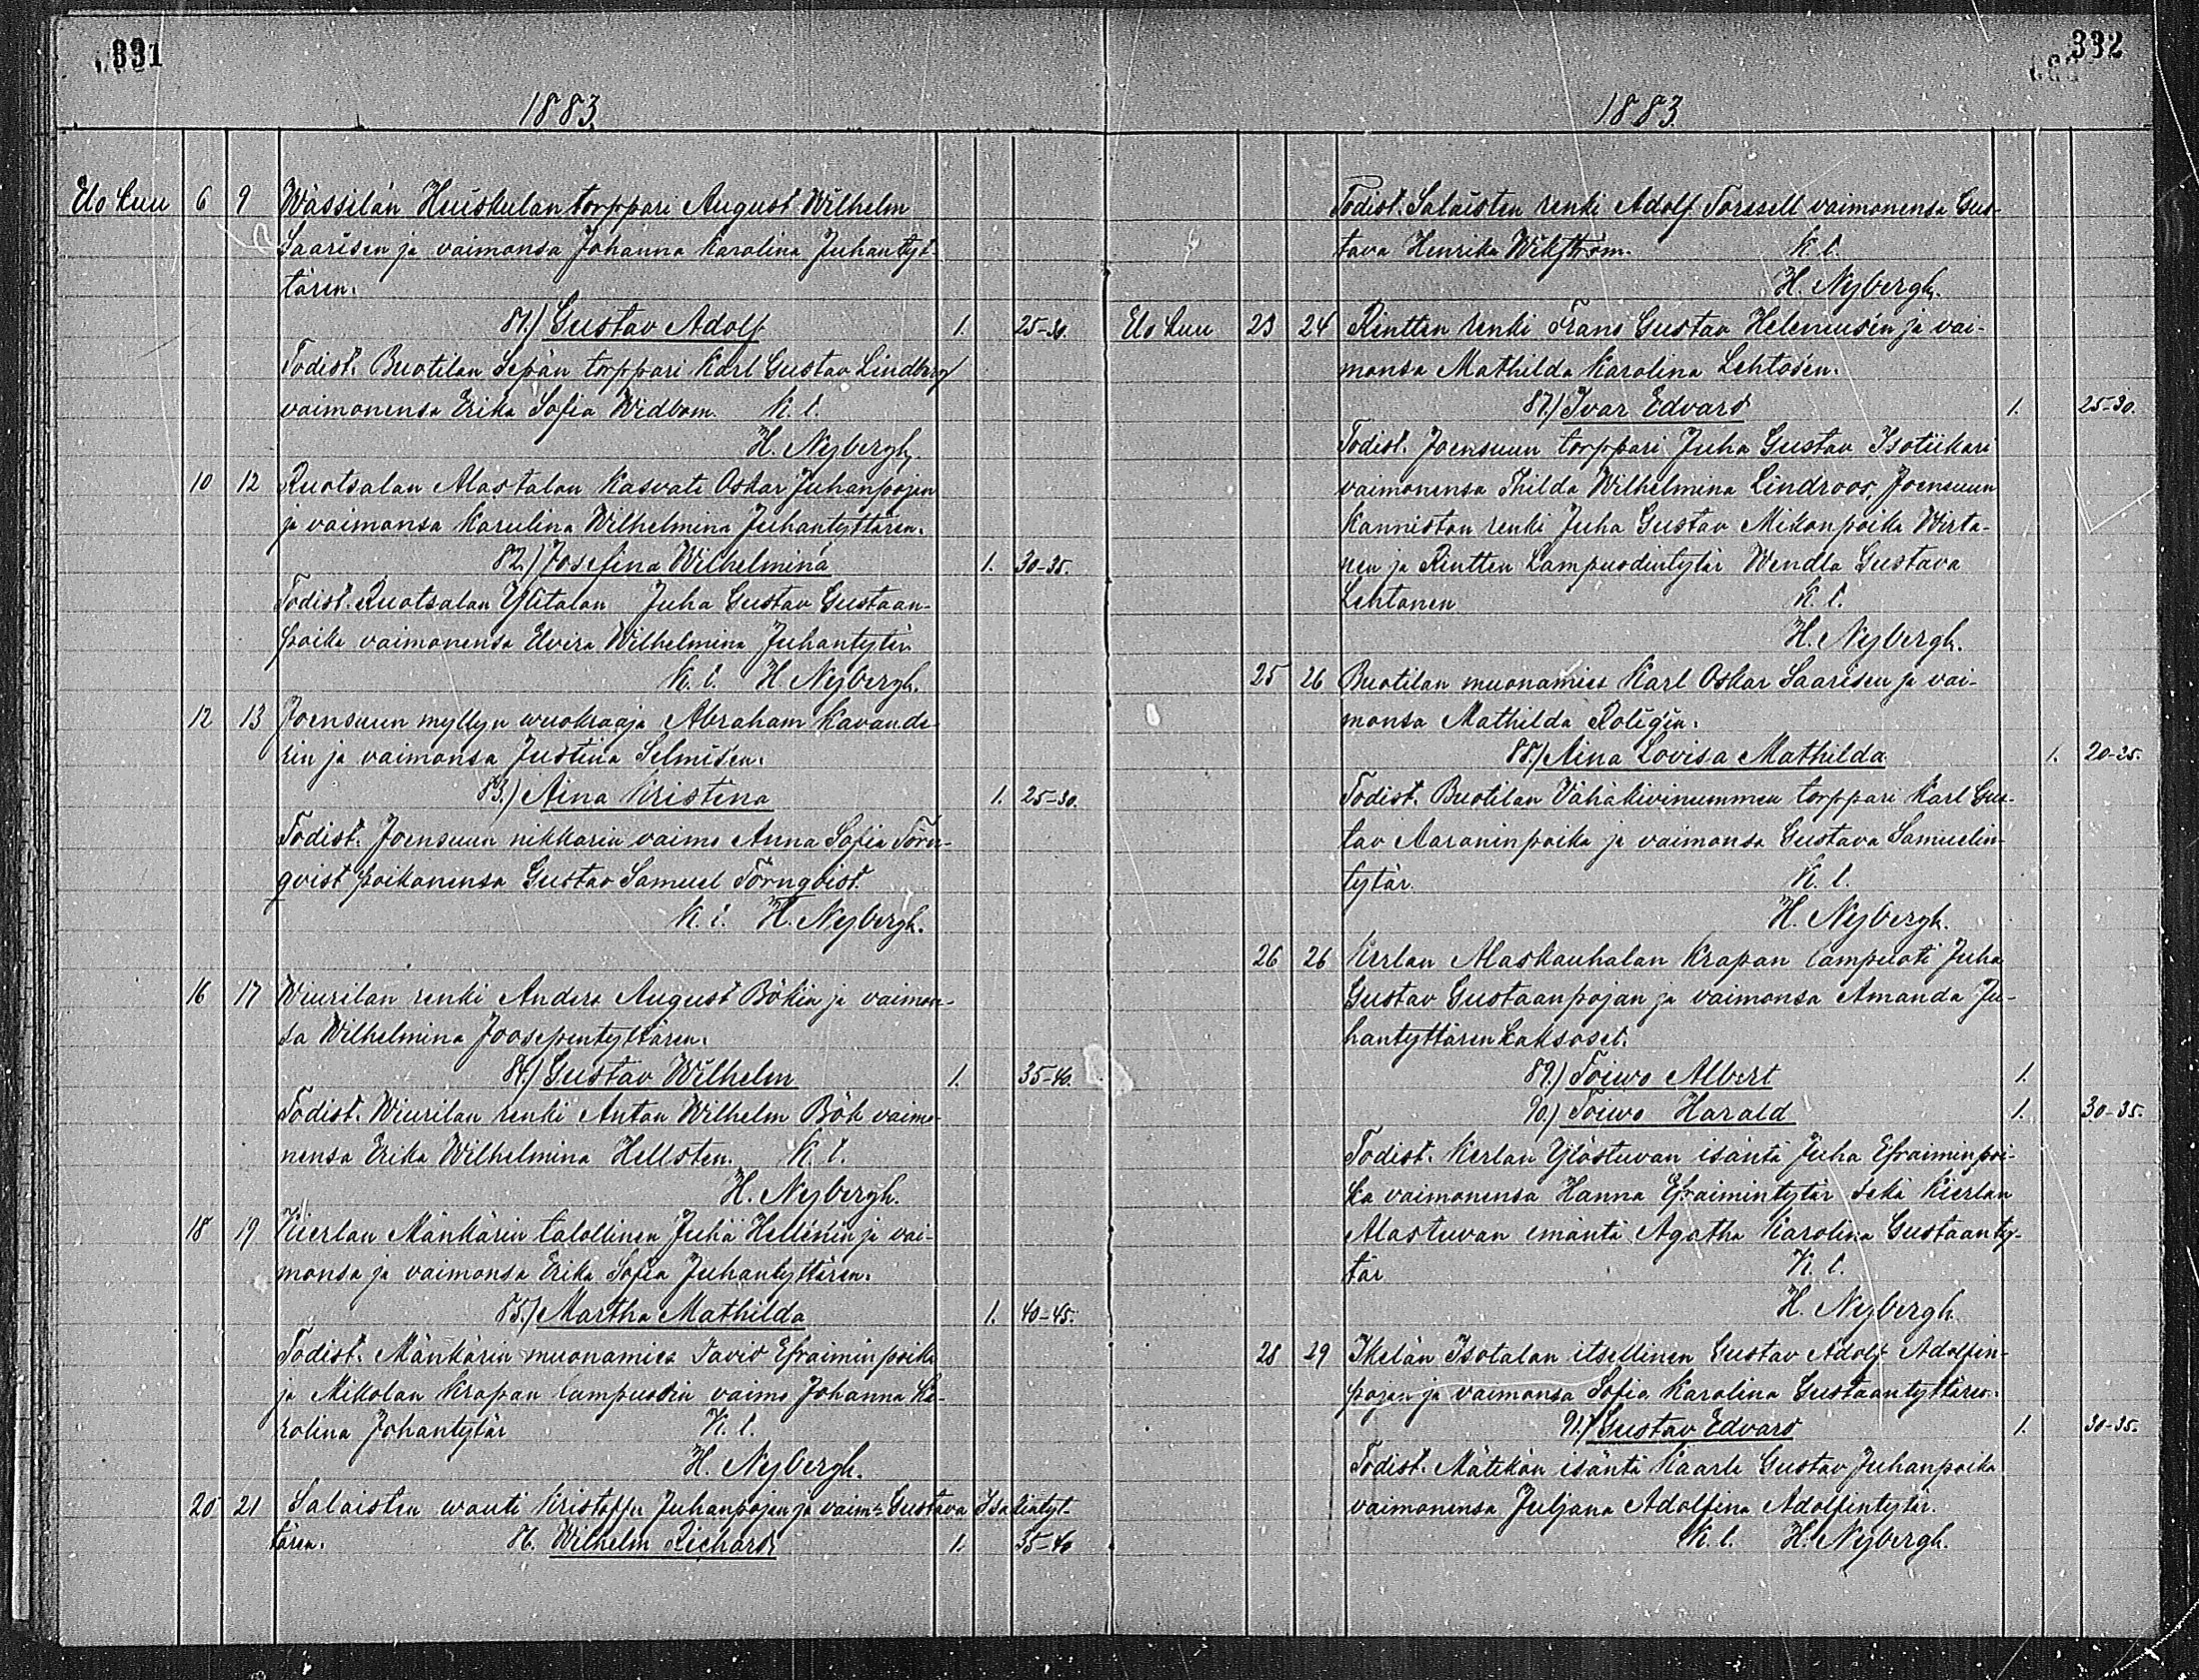 331
1883
Elo kuu 6 9 Wässilän Huiskulan torppari August Wilhelm
Saarisen ja vaimonsa Johanna Karolina Juhantyt-
tären.
81.) Gustav Adolf 1. 25-30.
Todist. Buotilan Sepän torppari Karl Gustav Lindberg
vaimonensa Erika Sofia Widbom. K. l.
H. Nybergh.
10 12 Ruotsalan Alastalon kasvati Oskar Juhanpojan
ja vaimonsa Karulina Wilhelmina Juhantyttären.
82.) Josefina Wilhelmina 1. 30-35.
Todist. Ruotsalan Ylitalon Juha Gustav Gustaan-
poika vaimonensa Elvira Wilhelmina Juhantytär.
K. l. H. Nybergh.
12 13 Joensuun myllyn wuokraaja Abraham Kavande-
rin ja vaimonsa Justina Selmisen.
83.) Aina Kristina 1. 25-30.
Todist. Joensuun nikkarin vaimo Anna Sofia Törn-
qvist poikanensa Gustav Samuel Törnqvist.
K. l. H. Nybergh.
16 17 Wiurilan renki Anders August Bökin ja vaimon-
sa Wilhelmina Joosepintyttären.
84.) Gustav Wilhelm 1. 35-40.
Todist. Wiurilan renki Anton Wilhelm Bök vaimo-
nensa Erika Wilhelmina Hellsten. K. l.
H. Nybergh.
18 19 Kierlan Mänkärin talollinen Juha Hellénin ja vai-
monsa ja vaimonsa Erika Sofia Juhantyttären.
85.) Martha Mathilda 1. 40-45.
Todist. Mänkärin muonamies Tavid Efraiminpoika
ja Mikolan Krapan lampuodin vaimo Johanna Ka-
rolina Johantytär K. l.
H. Nybergh.
20 21 Salaisten wauti Kristoffer Juhanpojan ja vaim:s Gustava Isakintyt-
tären. 86. Wilhelm Richard 1. 35-40
332
1883.
Todist. Salaisten renki Adolf Forssell vaimonensa Gus-
tava Henrika Wikström. K. l.
H. Nybergh.
Elo kuu 23 24 Rintten renki Frans Gustav Heleniusén ja vai-
monsa Mathilda Karolina Lehtosen.
87.) Ivar Edvard 1. 25-30.
Todist. Joensuun torppari Juha Gustav Isotiikari
vaimonensa Thilda Wilhelmina Lindroos, Joensuun
Kanniston renki Juha Gustav Mikonpoika Wirta-
nen ja Rintten Lampuodintytär Wendla Gustava
Lehtonen K. l.
H. Nybergh.
25 26 Buotilan muonamies Karl Oskar Saarisen ja vai-
monsa Mathilda Roligin.
88.) Aina Lovisa Mathilda 1. 20-25.
Todist. Buotilan Vähäkivinummen torppari Karl Gus-
tav Aaraninpoika ja vaimonsa Gustava Samuelin-
tytär. K. l.
H. Nybergh.
26 26 Kerlan Alaskauhalan Krapan lampuoti Juha
Gustav Gustaanpojan ja vaimonsa Amanda Ju-
hantyttären kaksoset.
89.) Toiwo Albert 1.
90.) Toiwo Harald 1. 30-35.
Todist. Kerlan Ylöstuvan isäntä Juha Efraiminpoi-
ka vaimonensa Hanna Efraimintytär sekä Kierlan
Alastuvan emäntä Agatha Karolina Gustaanty-
tär K. l.
H. Nybergh.
28 29 Ikelän Isotalan itsellinen Gustav Adolf Adolfin-
pojan ja vaimonsa Sofia Karolina Gustaantyttären.
91.) Gustav Edvard 1. 30-35.
Todist. Mätikön isäntä Kaarle Gustav Juhanpoika
vaimonensa Juljana Adolfina Adolfintytär.
K. l. H. Nybergh.